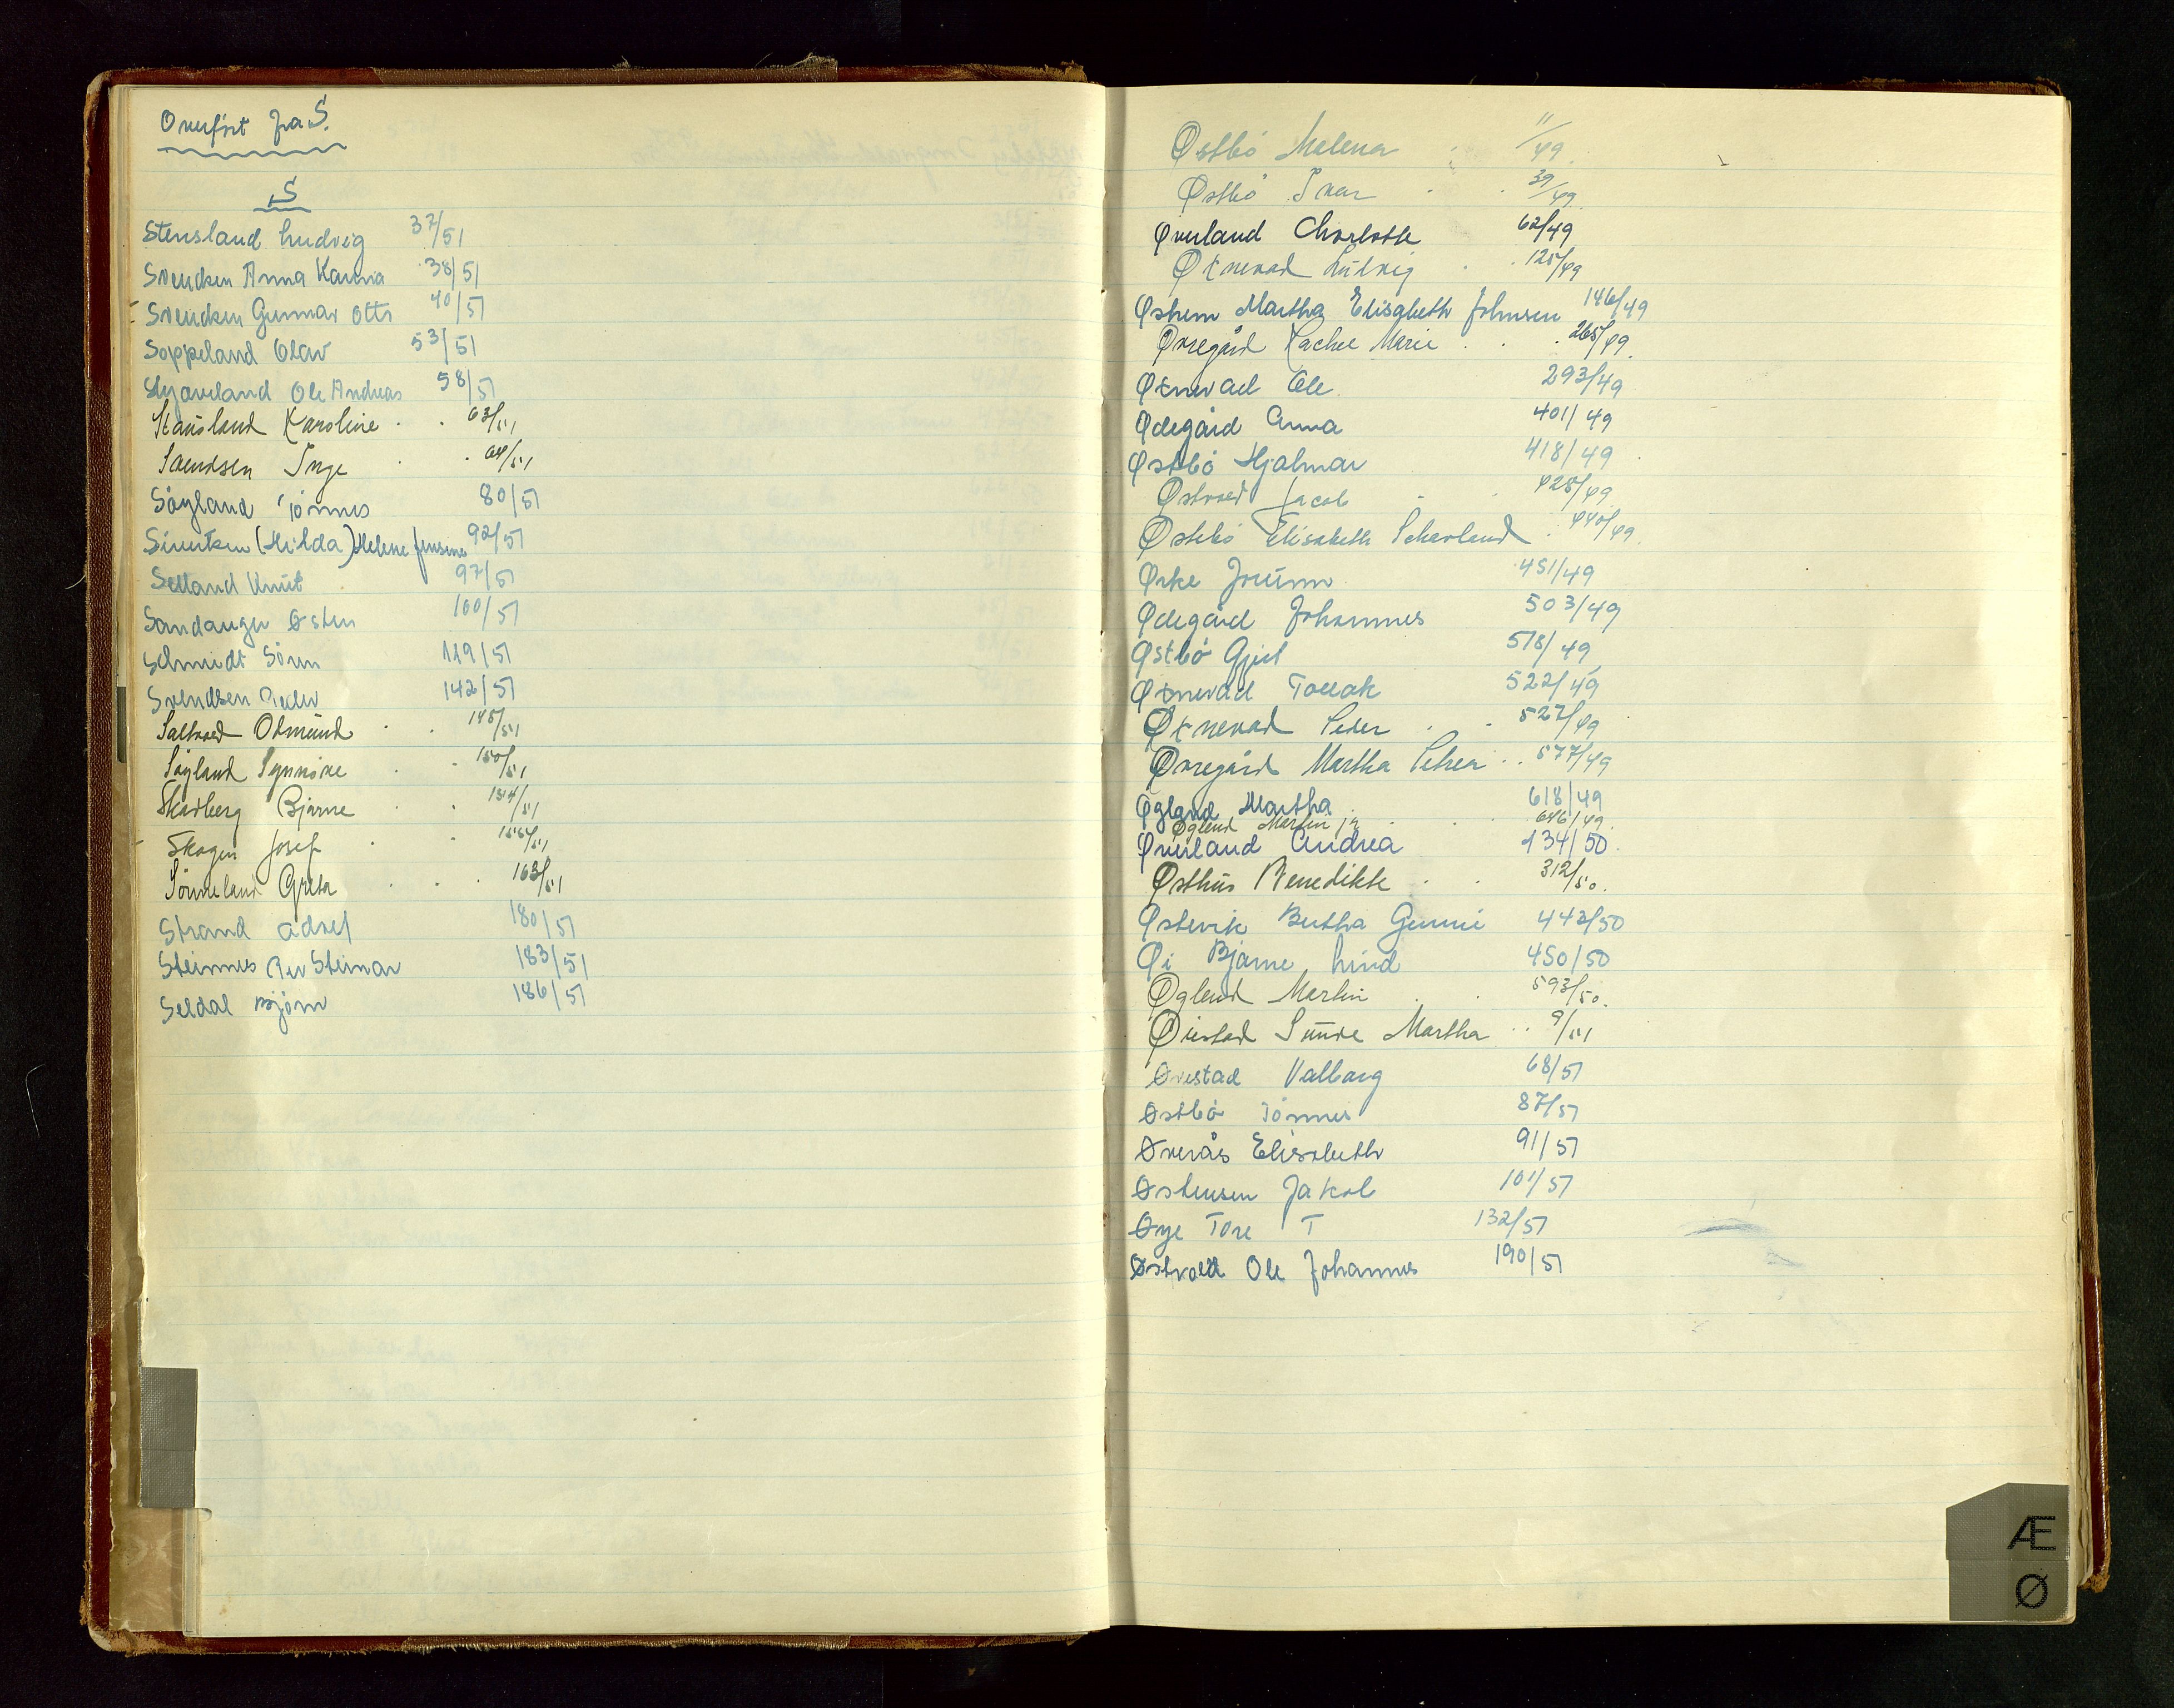 Overført fra S.
S
Stensland Ludvig 37/51
Svendsen Anna Karina 38/51
Svendsen Gunnar Otto 40/51
Soppeland Olav 53/51
Skjæveland Ole Andreas 58/51
Stausland Karoline . . 63/51
Svendsen Inge . . 64/51
Söyland Tönnes 80/51
Sivertsen (Hilda) Helene Jensine 92/51
Selland Knut 97/51
Sandanger Østen 100/51
Schmidt Sören 119/51
Svendsen Peder 142/51
Saltroed Odmund . . 145/51
Söyland Synnöve . . 150/51
Skadberg Bjarne . . 154/51
Skogen Josef . . 155/51
Sönneland Greta . . . 163/51
Strand Adolf 180/51
Steinnes Per Steinar 183/51
Seldal Bjönn 186/51
Østbö Malena . 11/49.
Østbö Ivar . . 39/49.
Øverland Charlotte 62/49
Øxnevad Ludvig . . 125/49
Østrem Martha Elisabeth Johnsen 146/49
Øvregård Rachel Marie . . . 265/49.
Øxnevad Ole 293/49
Ødegård Anna 401/49
Østbö Hjalmar 418/49
Østraad Jacob . . 425/49
Østebö Elisabeth Skarland . 440/49.
Ørke Jorunn 451/49
Ødegård Johannes 503/49
Østbö Gjert 518/49
Øxnevad Tollak 522/49
Øxnevad Peder . . 527/49
Øvregård Martha Petrea . . 577/49
Øgland Martha . 618/49
Øglend Martin jr. . . 646/49.
Øverland Andrea 134/50.
Østhus Benedikte . . 312/50.
Østervik Bertha Gunni 442/50
Øi Bjarne Lind 450/50
Øglend Martin . . 593/50.
Øvestad Sunde Martha . . 9/51
Øvestad Valborg 68/51
Østbö Tönnes 87/51
Øverås Elisabeth 91/51
Østensen Jakob 101/51
Øye Tore T 132/51
Østvold Ole Johannes 190/51
Æ
Ø